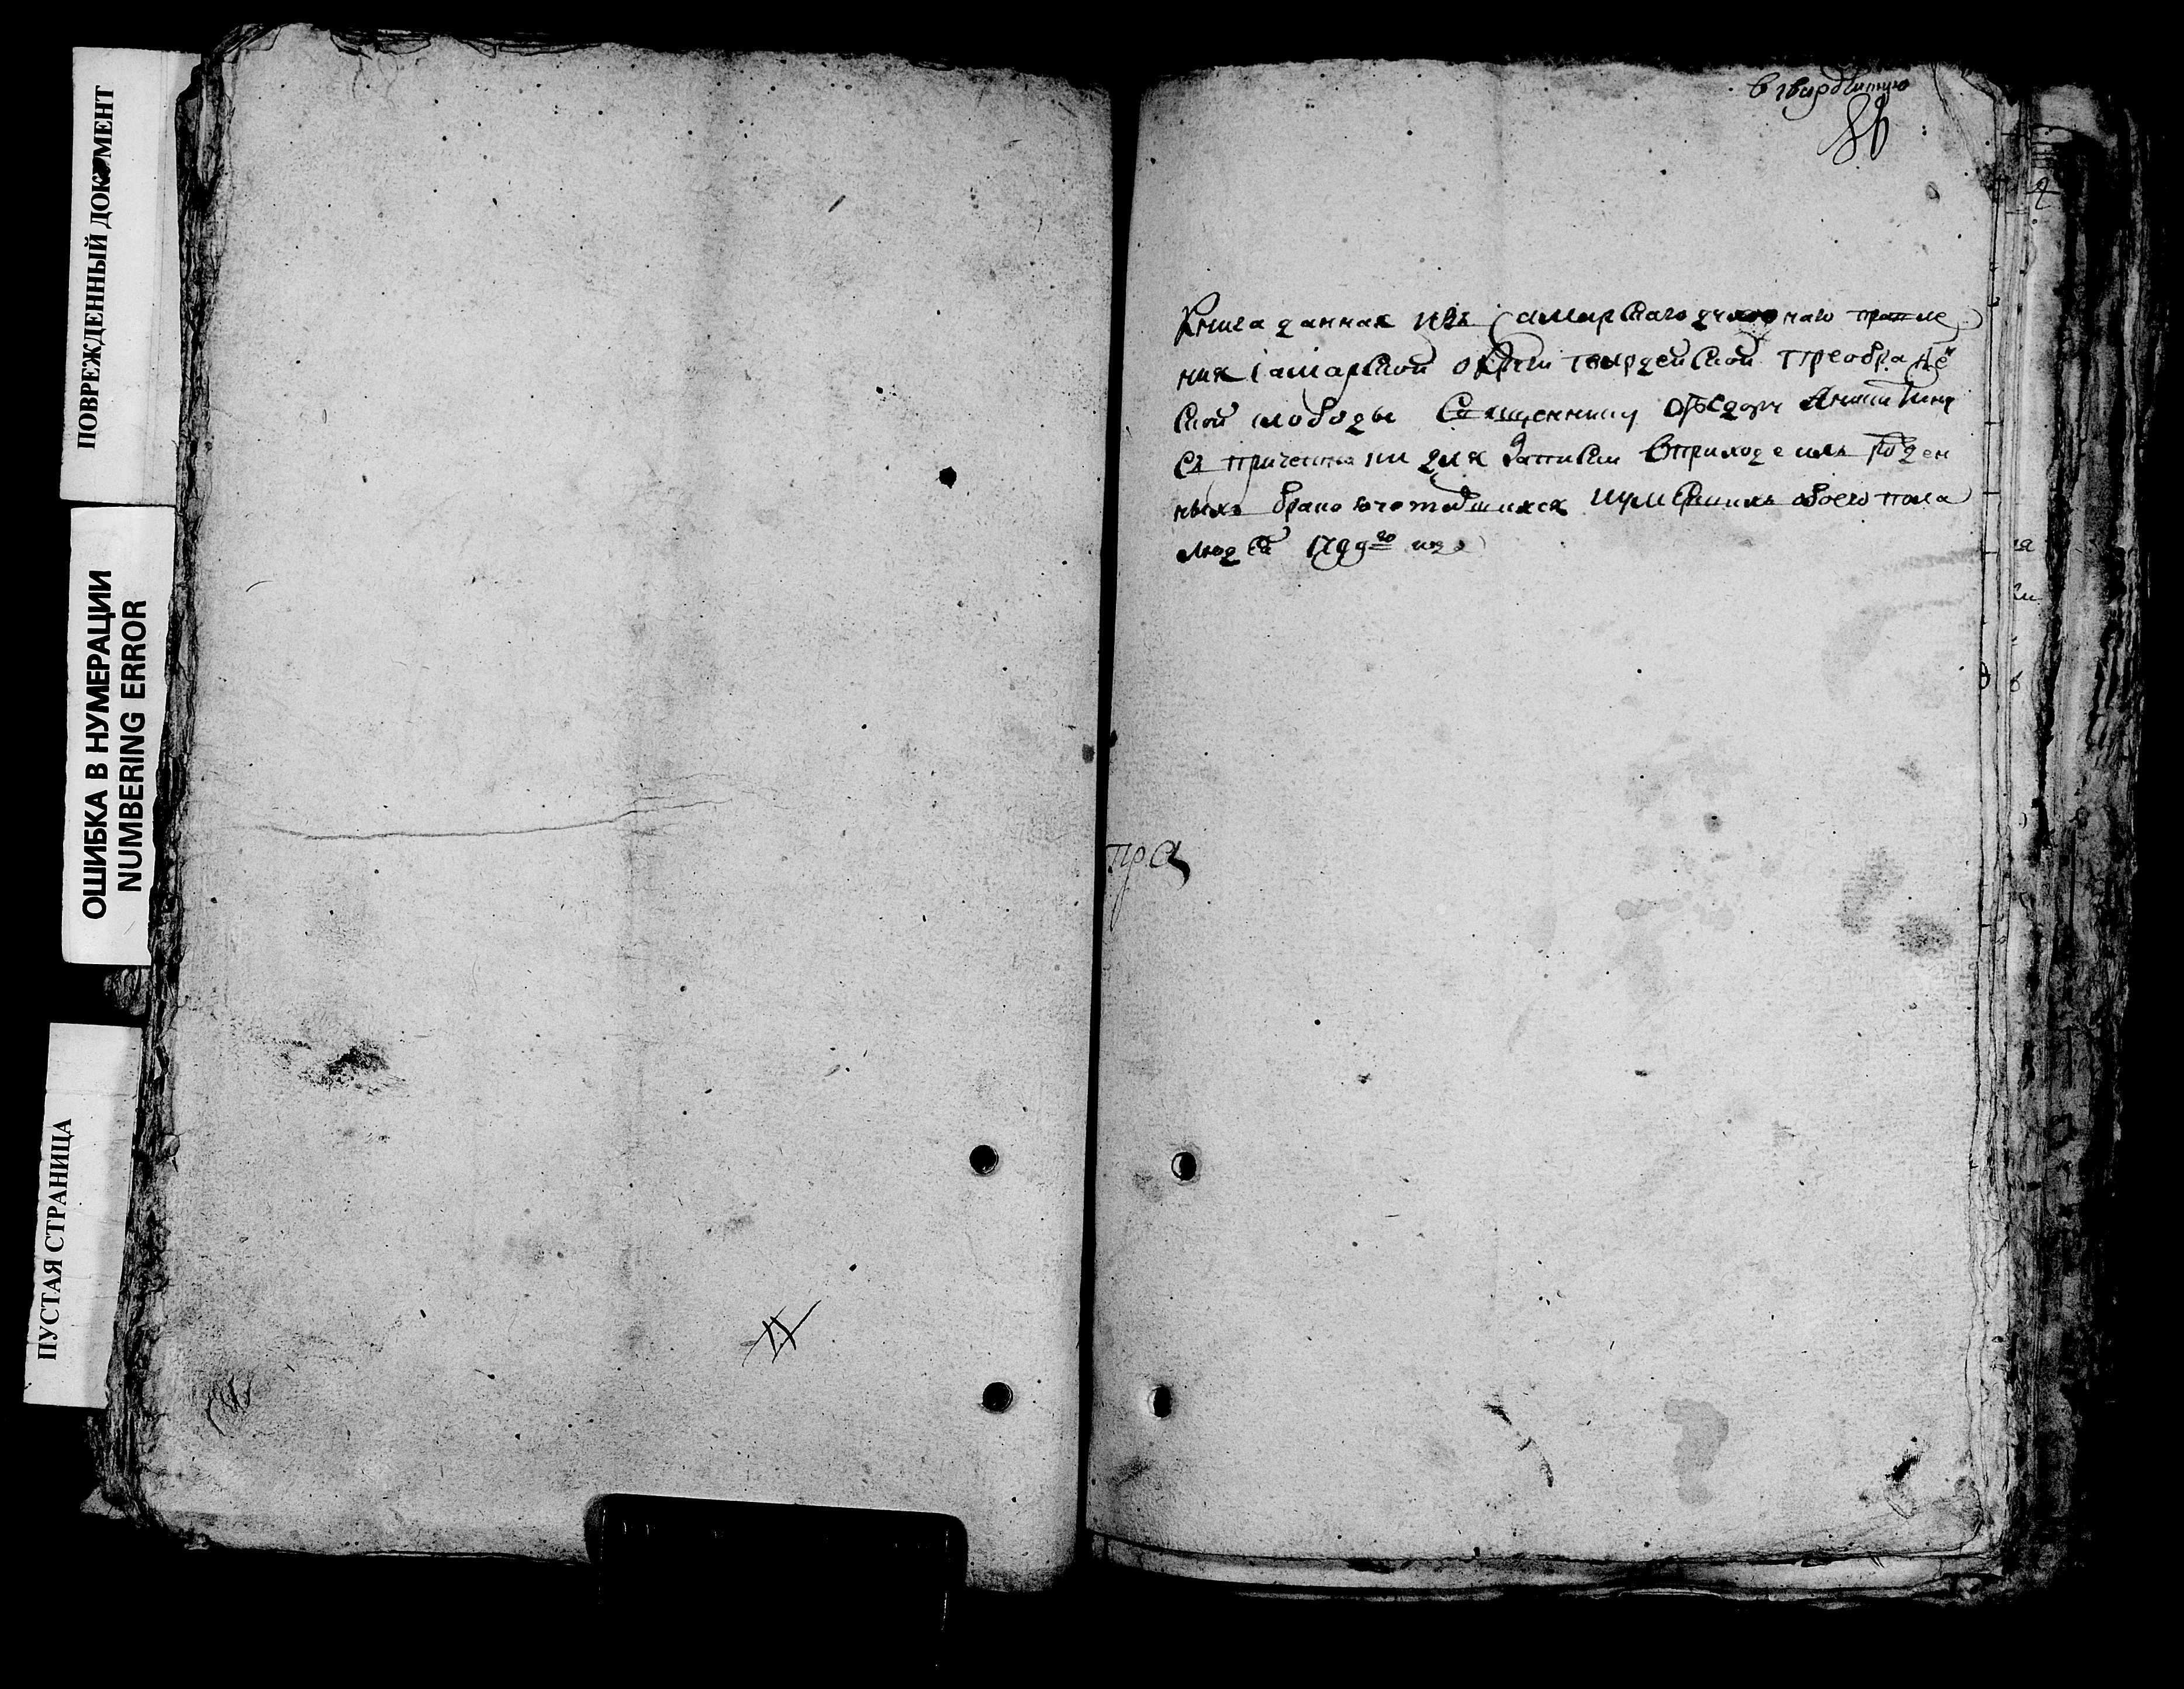 ПОВРЕЖДЕННЫЙ ДОКУМЕНТ
ОШИБКА В НУМЕРАЦИИ
NUMBERING ERROR
ПУСТАЯ СТРАНИЦА
86
Книга данная изъ Самарскаго духовнаго правле
ния Самарской округи гвардейской Преображен
ской слободы Священнику Феодору Никитину
Съ причетники для записки въ приходе ихъ рожден
ныхъ браком сочетавшихся и умершихъ обоего пола
людей 1799го года
пра